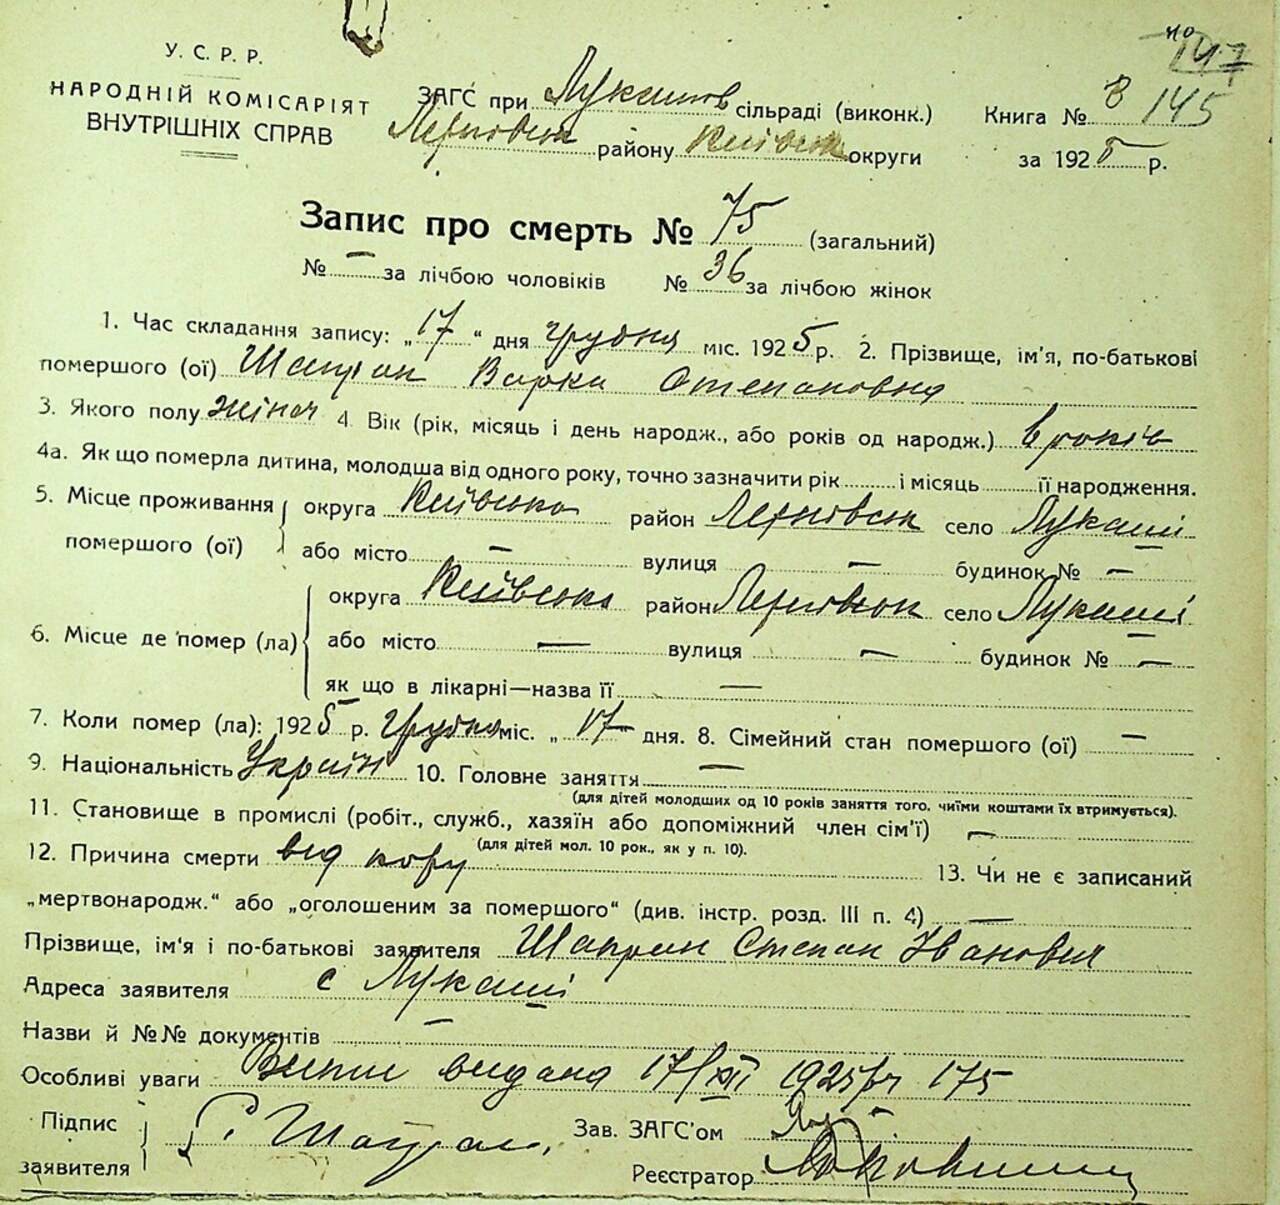 147
У. С. Р. Р.
НАРОДНІЙ КОМІСАРІЯТ
ВНУТРІШНІХ СПРАВ
ЗАГС при Лукашов сільраді (виконк.)
району Київськ округи
Книга № 145
за 1925 р.
Запис про смерть № 75 (загальний)
№ — за лічбою чоловіків № 36 за лічбою жінок
1. Час складання запису: „17“ дня грудня міс. 1925 р. 2. Прізвище, ім'я, по-батькові
помершого (ої) Шапран Варка Степановна
3. Якого полу жіноч 4. Вік (рік, місяць і день народж., або років од народж.) років
4а. Як що померла дитина, молодша від одного року, точно зазначити рік і місяць її народження.
5. Місце проживання помершого (ої) округа Київська район село Лукаші
або місто — вулиця — будинок № —
6. Місце де помер (ла) округа Київська район село Лукаші
або місто — вулиця — будинок № —
як що в лікарні—назва її —
7. Коли помер (ла): 1925 р. грудня міс. „17“ дня. 8. Сімейний стан помершого (ої) —
9. Національність Україн 10. Головне заняття —
(для дітей молодших од 10 років заняття того, чиїми коштами їх втримується).
11. Становище в промислі (робіт., служб., хазяїн або допоміжний член сім'ї) —
(для дітей мол. 10 рок., як у п. 10).
12. Причина смерти від кору 13. Чи не є записаний
„мертвонародж.“ або „оголошеним за помершого“ (див. інстр. розд. III п. 4) —
Прізвище, ім'я і по-батькові заявителя Шапран Степан Іванович
Адреса заявителя с Лукаші
Назви й №№ документів —
Особливі уваги видана 17/XII 1925 р ч 175
Підпис заявителя С. Шапран
Зав. ЗАГС'ом
Реєстратор